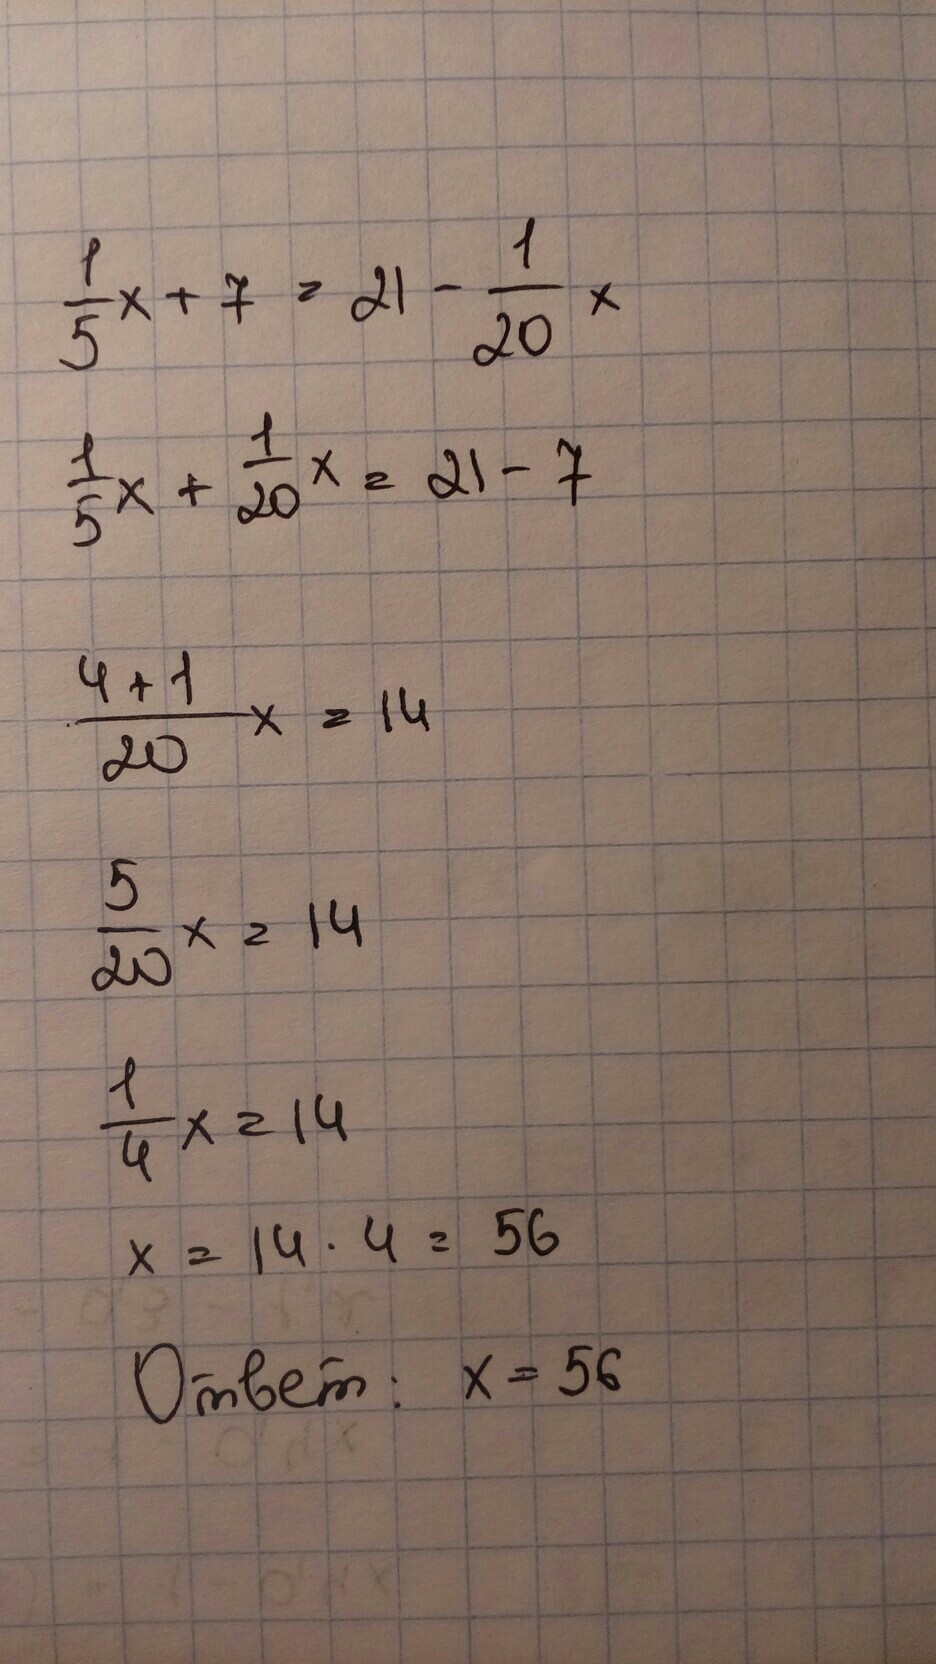 1/5 x + 7 = 21 - 1/20 x
1/5 x + 1/20 x = 21 - 7
4+1/20 x = 14
5/20 x = 14
1/4 x = 14
x = 14 · 4 = 56
Ответ: x = 56